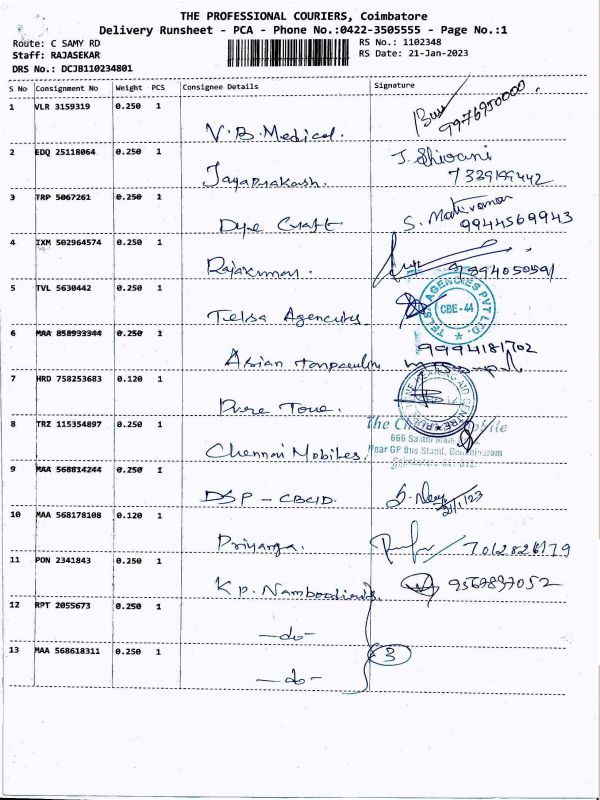 THE PROFESSIONAL COURIERS, Coimbatore
Delivery Runsheet - PCA - Phone No.:0422-3505555 - Page No.:1
Route: C SAMY RD
RS No.: 1102348
Staff: RAJASEKAR
RS Date: 21-Jan-2023
DRS No.: DCJB110234801
S No Consignment No Weight PCS Consignee Details Signature
1 VLR 3159319 0.250 1
V.B. Medical.
9976950000.
2 EDQ 25118064 0.250 1
Jayaprakash. J. Shivani
7339199442
3 TRP 5067261 0.250 1
Dype Craft S. Mathivanan
9944569943
4 IXM 502964574 0.250 1
Rajakumar.
5 TVL 5630442 0.250 1
Telsa Agencies
TELSA AGENCIES PVT LTD.
CBE-44
6 MAA 858933344 0.250 1
9994181702
Asian
7 HRD 758253683 0.120 1
Pure Tone.
8 TRZ 115354897 0.250 1
Chennai Mobiles.
Near GP Bus Stand,
9 MAA 568814244 0.250 1
DSP - CBCID.
21/1/23
10 MAA 568178108 0.120 1
Priyanga.
11 PON 2341843 0.250 1
K.P. Namboodiri's. 9567897052
12 RPT 2055673 0.250 1
-do-
13 MAA 568618311 0.250 1
3
-do-